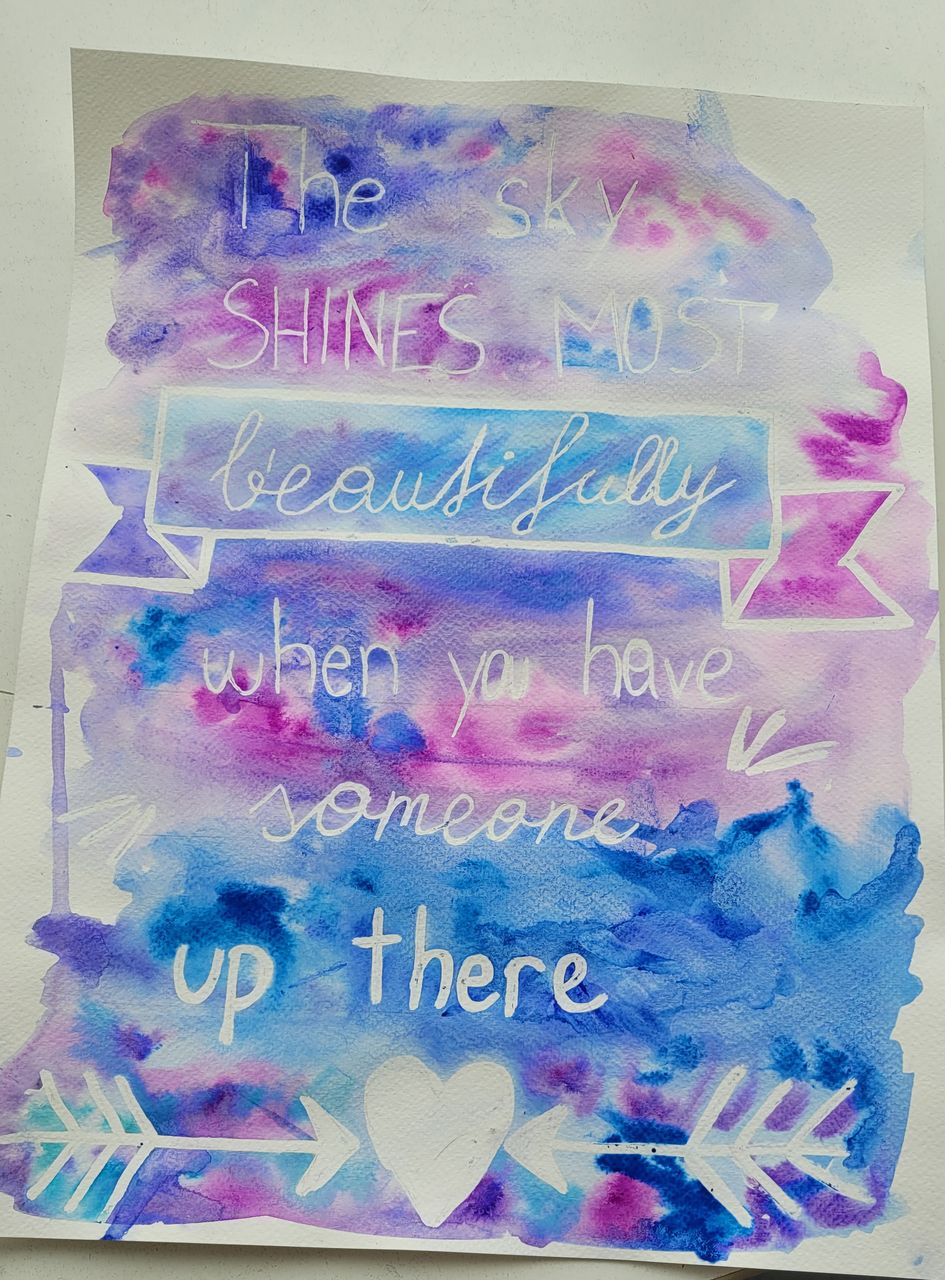 The sky
SHINES MOST
beautifully
when you have
someone
up there